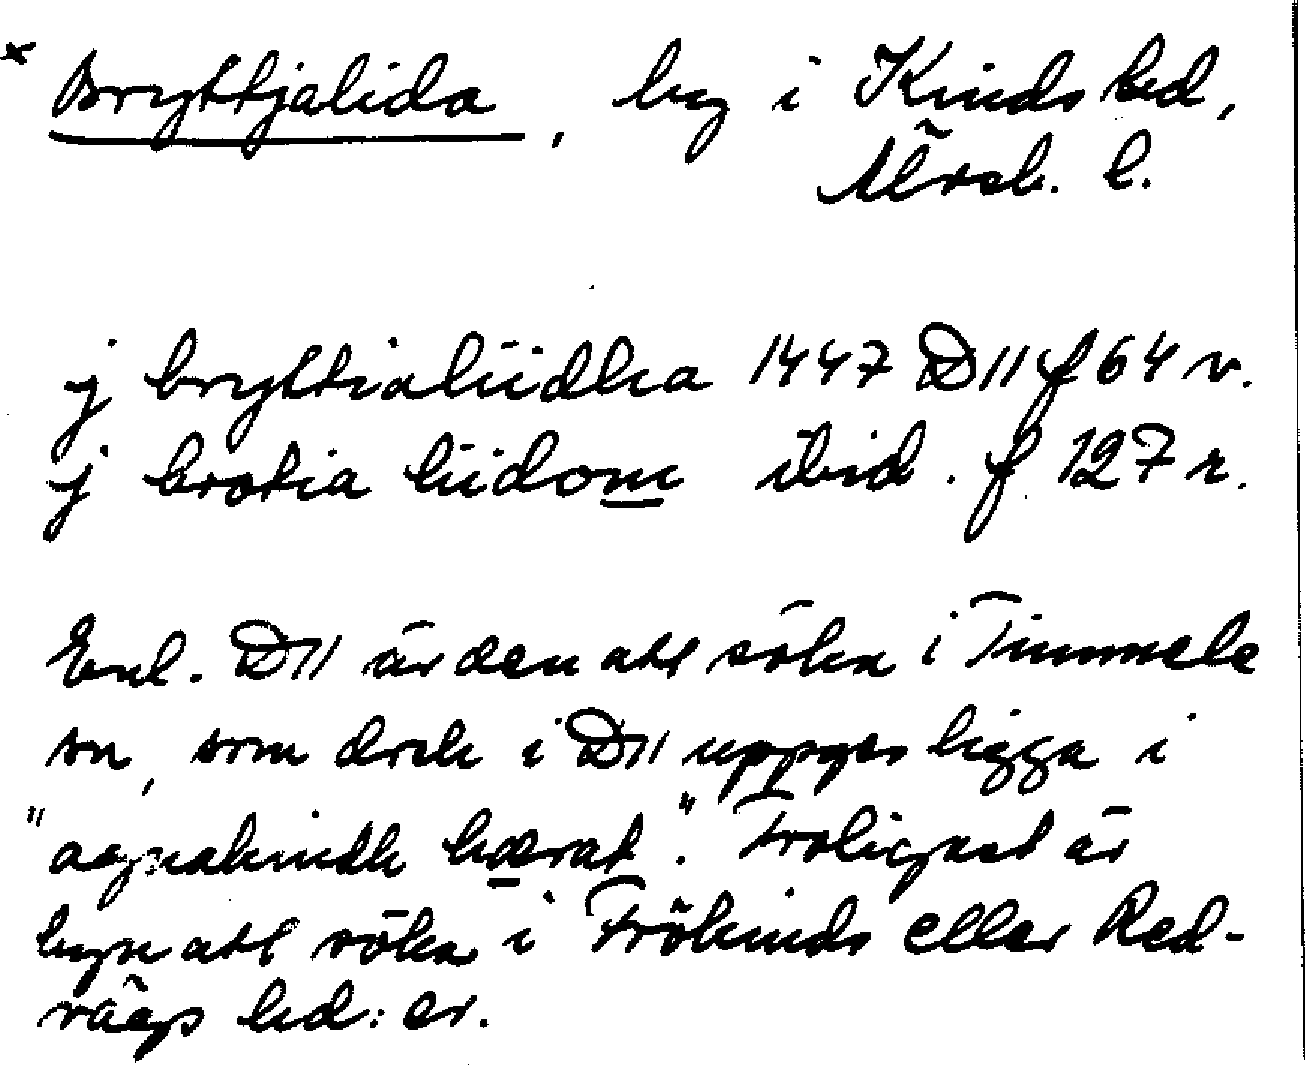 * Bryttjalida, by i Kinds hd,
Älvsb. l.
j bryttialiidha 1447 D11 f 64 v.
j brotia liidom ibid. f 127 r.
Enl. D11 är den att söka i Timmele
sn, som dock i D11 uppges ligga i
"agnakindh hærat". Troligast är
byn att söka i Frökinds eller Red-
vägs hd:er.